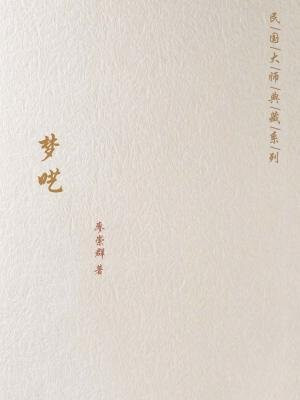 民国大师典藏系列
梦呓
廖崇群 著